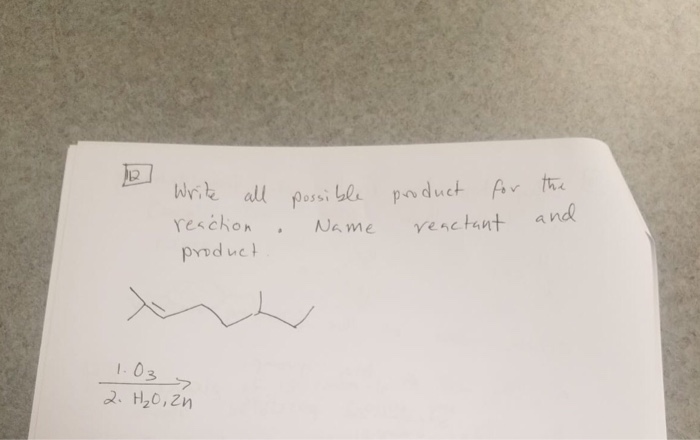 12
Write all possible product for the
reaction. Name reactant and
product.
1. O3
2. H2O, Zn